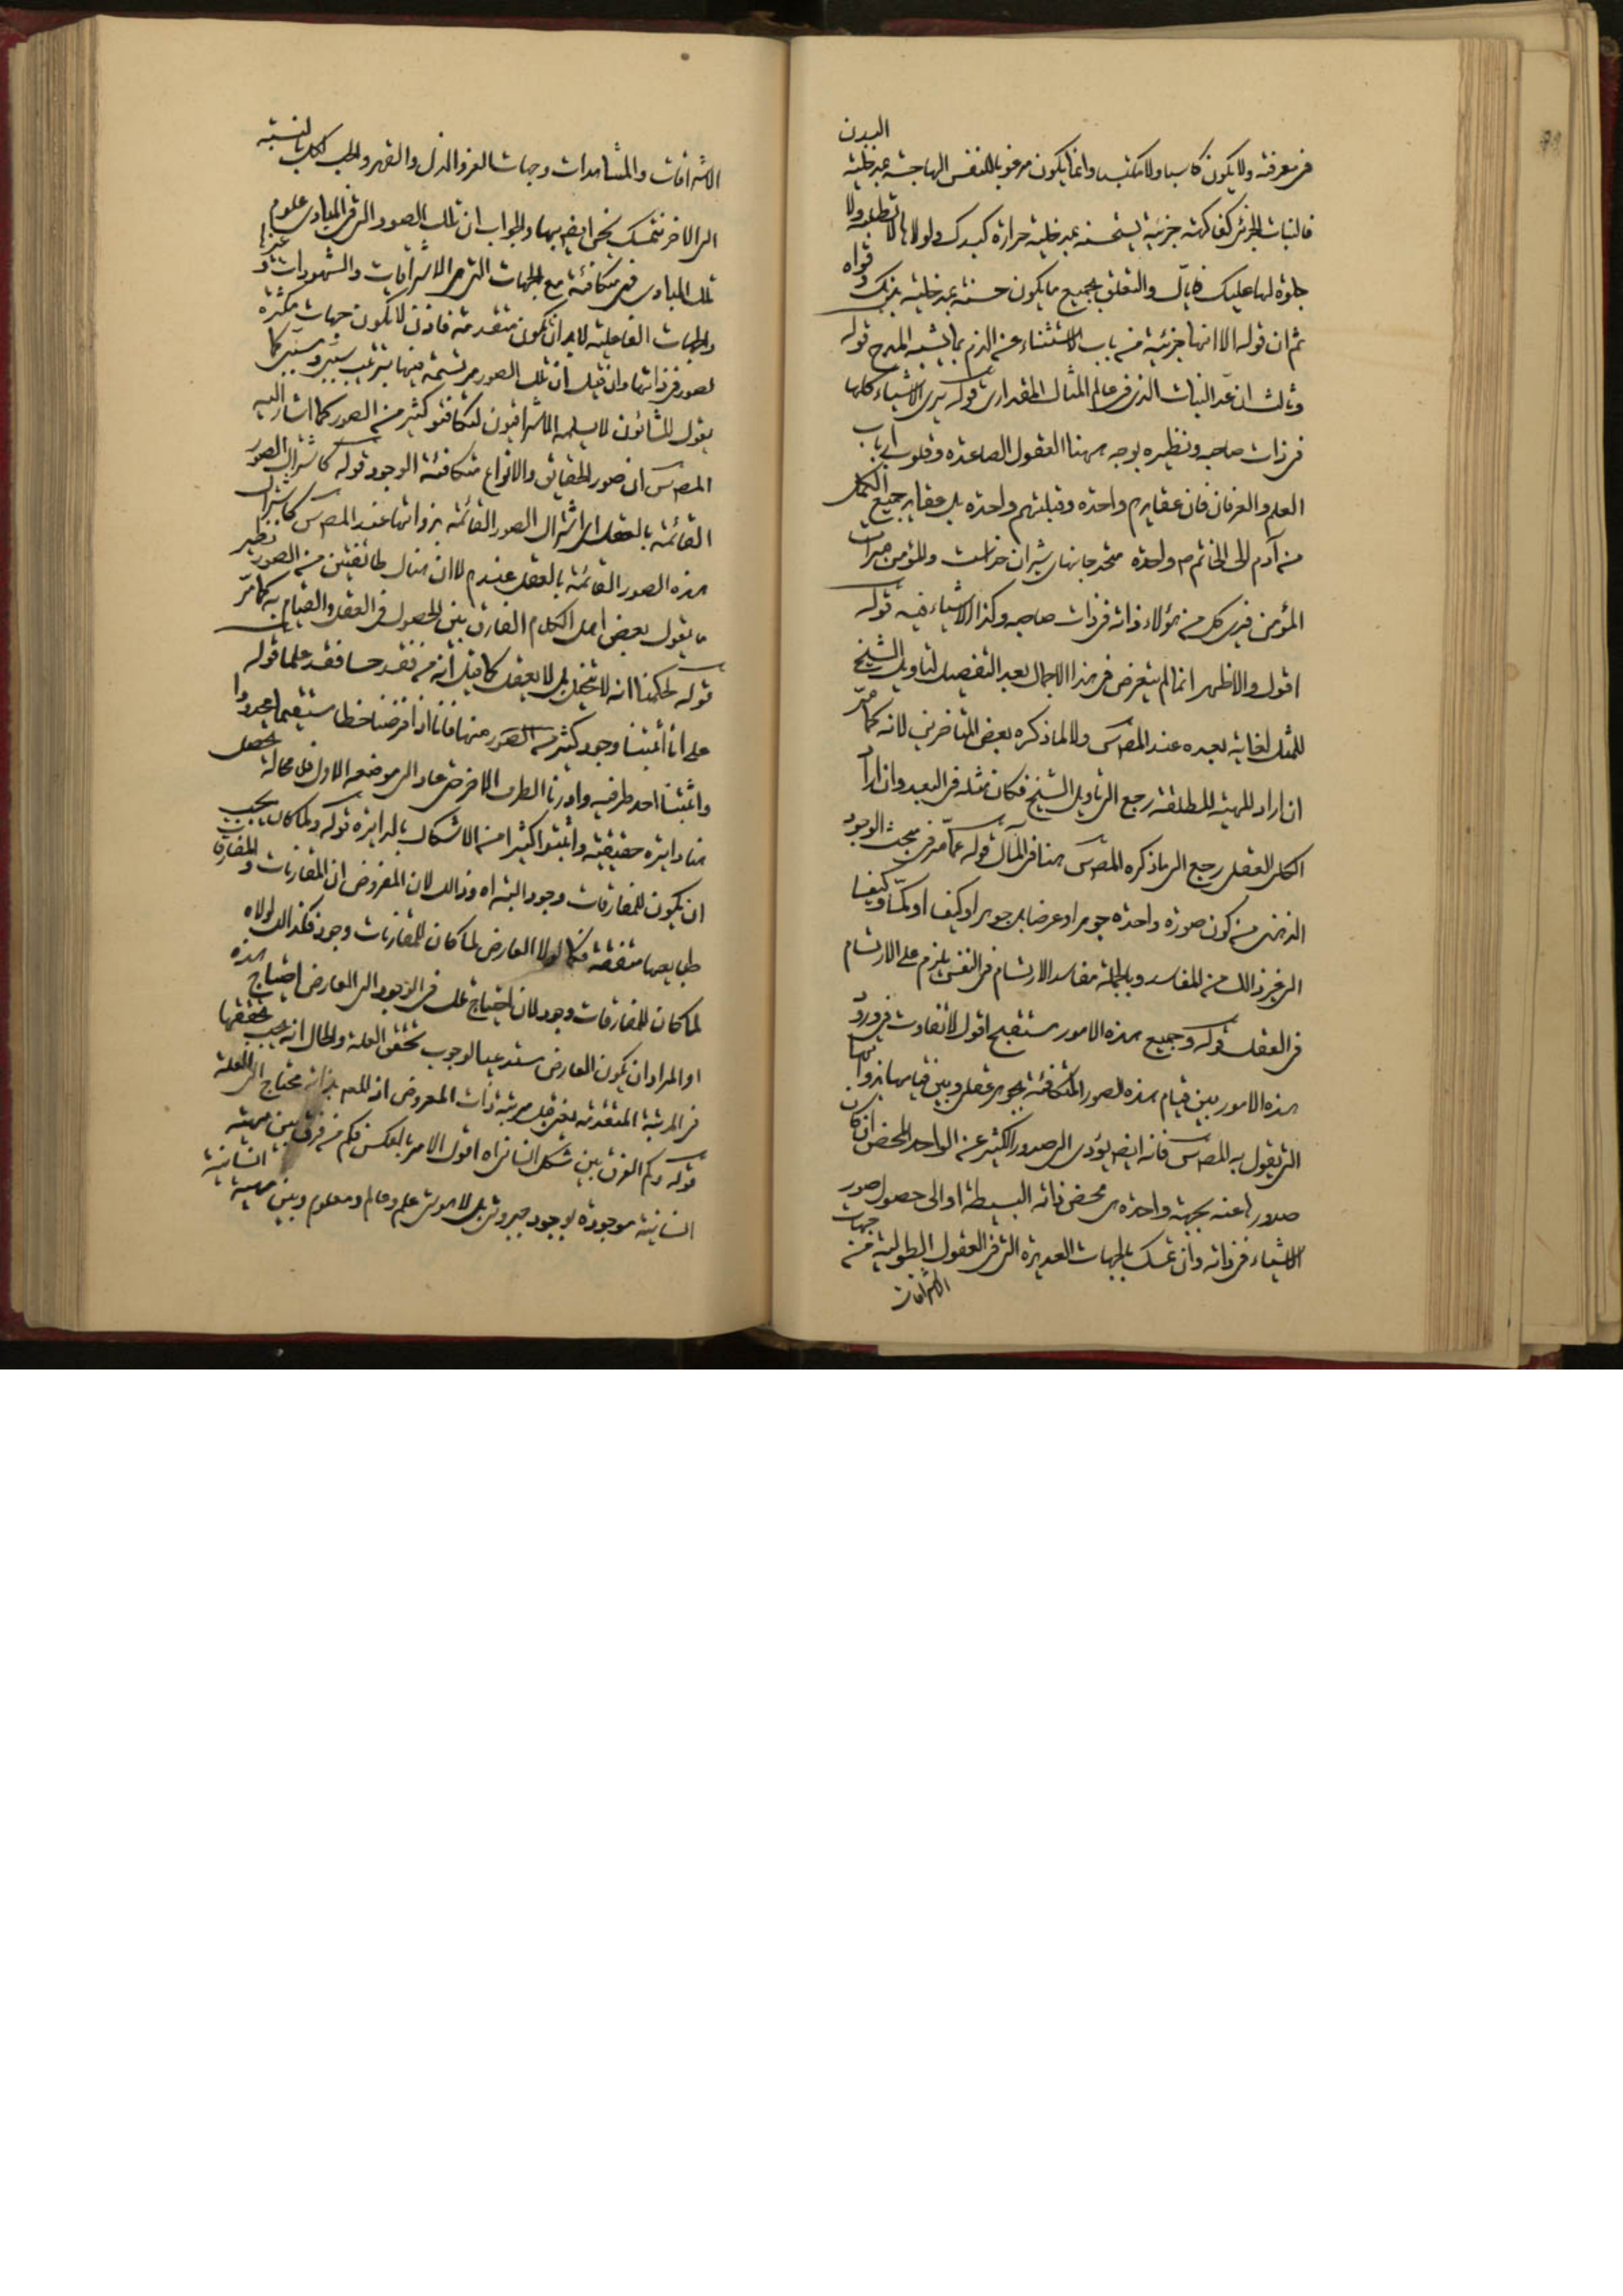 فى معرفته ولا يكون كاسبا ولا مكتسبا وانما يكون مرغوبا للنفس الهاجسة عبد خليته البدن
فالنبات الجزئى كفاكهة جزئية يستحسنه عبد خليته حرارة كبدك ولولاها لا تطلبه ولا
جلوة لها عليك فاياك والتعلق بجميع ما يكون حسنه عبد خليته بدنك وقواه
ثم ان قوله الا انها جزئية من باب الاستثناء عن الذم بما يشبه المدح قوله
وثالث ان عد النبات الذى فى عالم المثال المقدارى قوله يرى الاشياء كلها
فى ذات صاحبه ونظيره بوجه ههنا العقول الصاعدة وقلوب ارباب
العلم والعرفان فان عقايدهم واحدة وقبلتهم واحدة بل عقايد جميع الكمل
من آدم الى الخاتم ص واحدة متحد جانهاى شيران خداست والمؤمن مرآت
المؤمن فيرى كل من هؤلاء ذاته فى ذات صاحبه وكذا الاشياء فيه قوله
اقول والاظهر انما لم يتعرض فى هذا الاجمال بعد التفصيل لتاويل الشيخ
للمثل لغاية بعده عند المص س ولا لما ذكره بعض المتاخرين لانه كما مر
ان اراد المهية المطلقة رجع الى تاويل الشيخ فكان مثله فى البعد وان اراد
الكلى العقلى رجع الى ما ذكره المص س هنا فى المآل قوله عما مر فى مبحث الوجود
الذهنى من كون صورة واحدة جوهرا وعرضا بل جوهرا وكيفا او كما وكيفا
الى غير ذالك من المفاسد وبالجملة مفاسد الارتسام فى النفس يلزم على الارتسام
فى العقل قوله وجميع هذه الامور مستقبح اقول لا تفاوت فى ورود
هذه الامور بين قيام هذه الصور المتكافئة بجوهر عقلى وبين قيامها بذواتها
التى يقول به المص س فانه ايض يؤدى الى صدور الكثير عن الواحد المحض ان كان
صدورها عنه بجهة واحدة هى محض ذاته البسيطة او الى حصول صور
الاشياء فى ذاته وان تمسك بالجهات العديدة التى فى العقول الطولية من جهات
الاشراقات
الاشراقات والمشاهدات وجهات العز والذل والقهر والحب لكل بالنسبة
الى الاخر نتمسك نحن ايض بها والجواب ان تلك الصور التى فى المبادى علوم
تلك المبادى فهى متكافئة مع الجهات التى هى الاشراقات والشهودات وغيرها
والجهات الفاعلية لابد ان تكون متقدمة فاذن لا تكون جهات مكثرة
لصور فى ذاتها وان قيل ان تلك الصور مرتسمة فيها بترتيب سببى ومسببى كما
يقول المشائون لا يسلمه الاشراقيون لتكافئو كثير من الصور كما اشار اليه
المص س ان صور الحقايق والانواع متكافئة الوجود قوله كاشتراك الصور
القائمة بالعقل اى اشتراك الصور القائمة بذواتها عند المص س كاشتراك
هذه الصور القائمة بالعقل عندهم لا ان هناك طائفتين من الصور نظير
ما يقول بعض اهل الكلام الفارق بين الحصول فى العقل والقيام به كما مر
قوله لحكمنا انه لا يتخيل بل لا يعقل كما قيل انه من فقد حسا فقد علما قوله
على انا أثبتنا وجود كثير من الصور منها فانا اذا فرضنا خطا مستقيما محدودا
واثبتنا احد طرفيه وادرنا الطرف الاخر حتى عاد الى موضعه الاول فلا محالة يحصل
هنا دايرة حقيقية واثبتوا كثيرا من الاشكال بالدايرة قوله ولما كان يجب
ان يكون للمفارقات وجود البتة اه وذالك لان المفروض ان المقارنات والمفارقات
طبايعها متفقة فكما لولا العارض لما كان للمقارنات وجود فكذالك لولاه
لما كان للمفارقات وجود لان احتياج تلك فى الوجود الى العارض احتياج هذه
او المراد ان يكون العارض مستدعيا لوجوب تحقق العلة والحال انه يجب تحققها
فى المرتبة المتقدمة يعنى قبل مرتبة ذات المعروض اذ المعلول بذاته محتاج الى العلة
قوله وكم الفرق بين شكل انسانى اه اقول الامر بالعكس فكم من فرق بين مهية
انسانية موجودة بوجود جبروتى بل لاهوتى علم وعالم ومعلوم وبين مهية انسانية